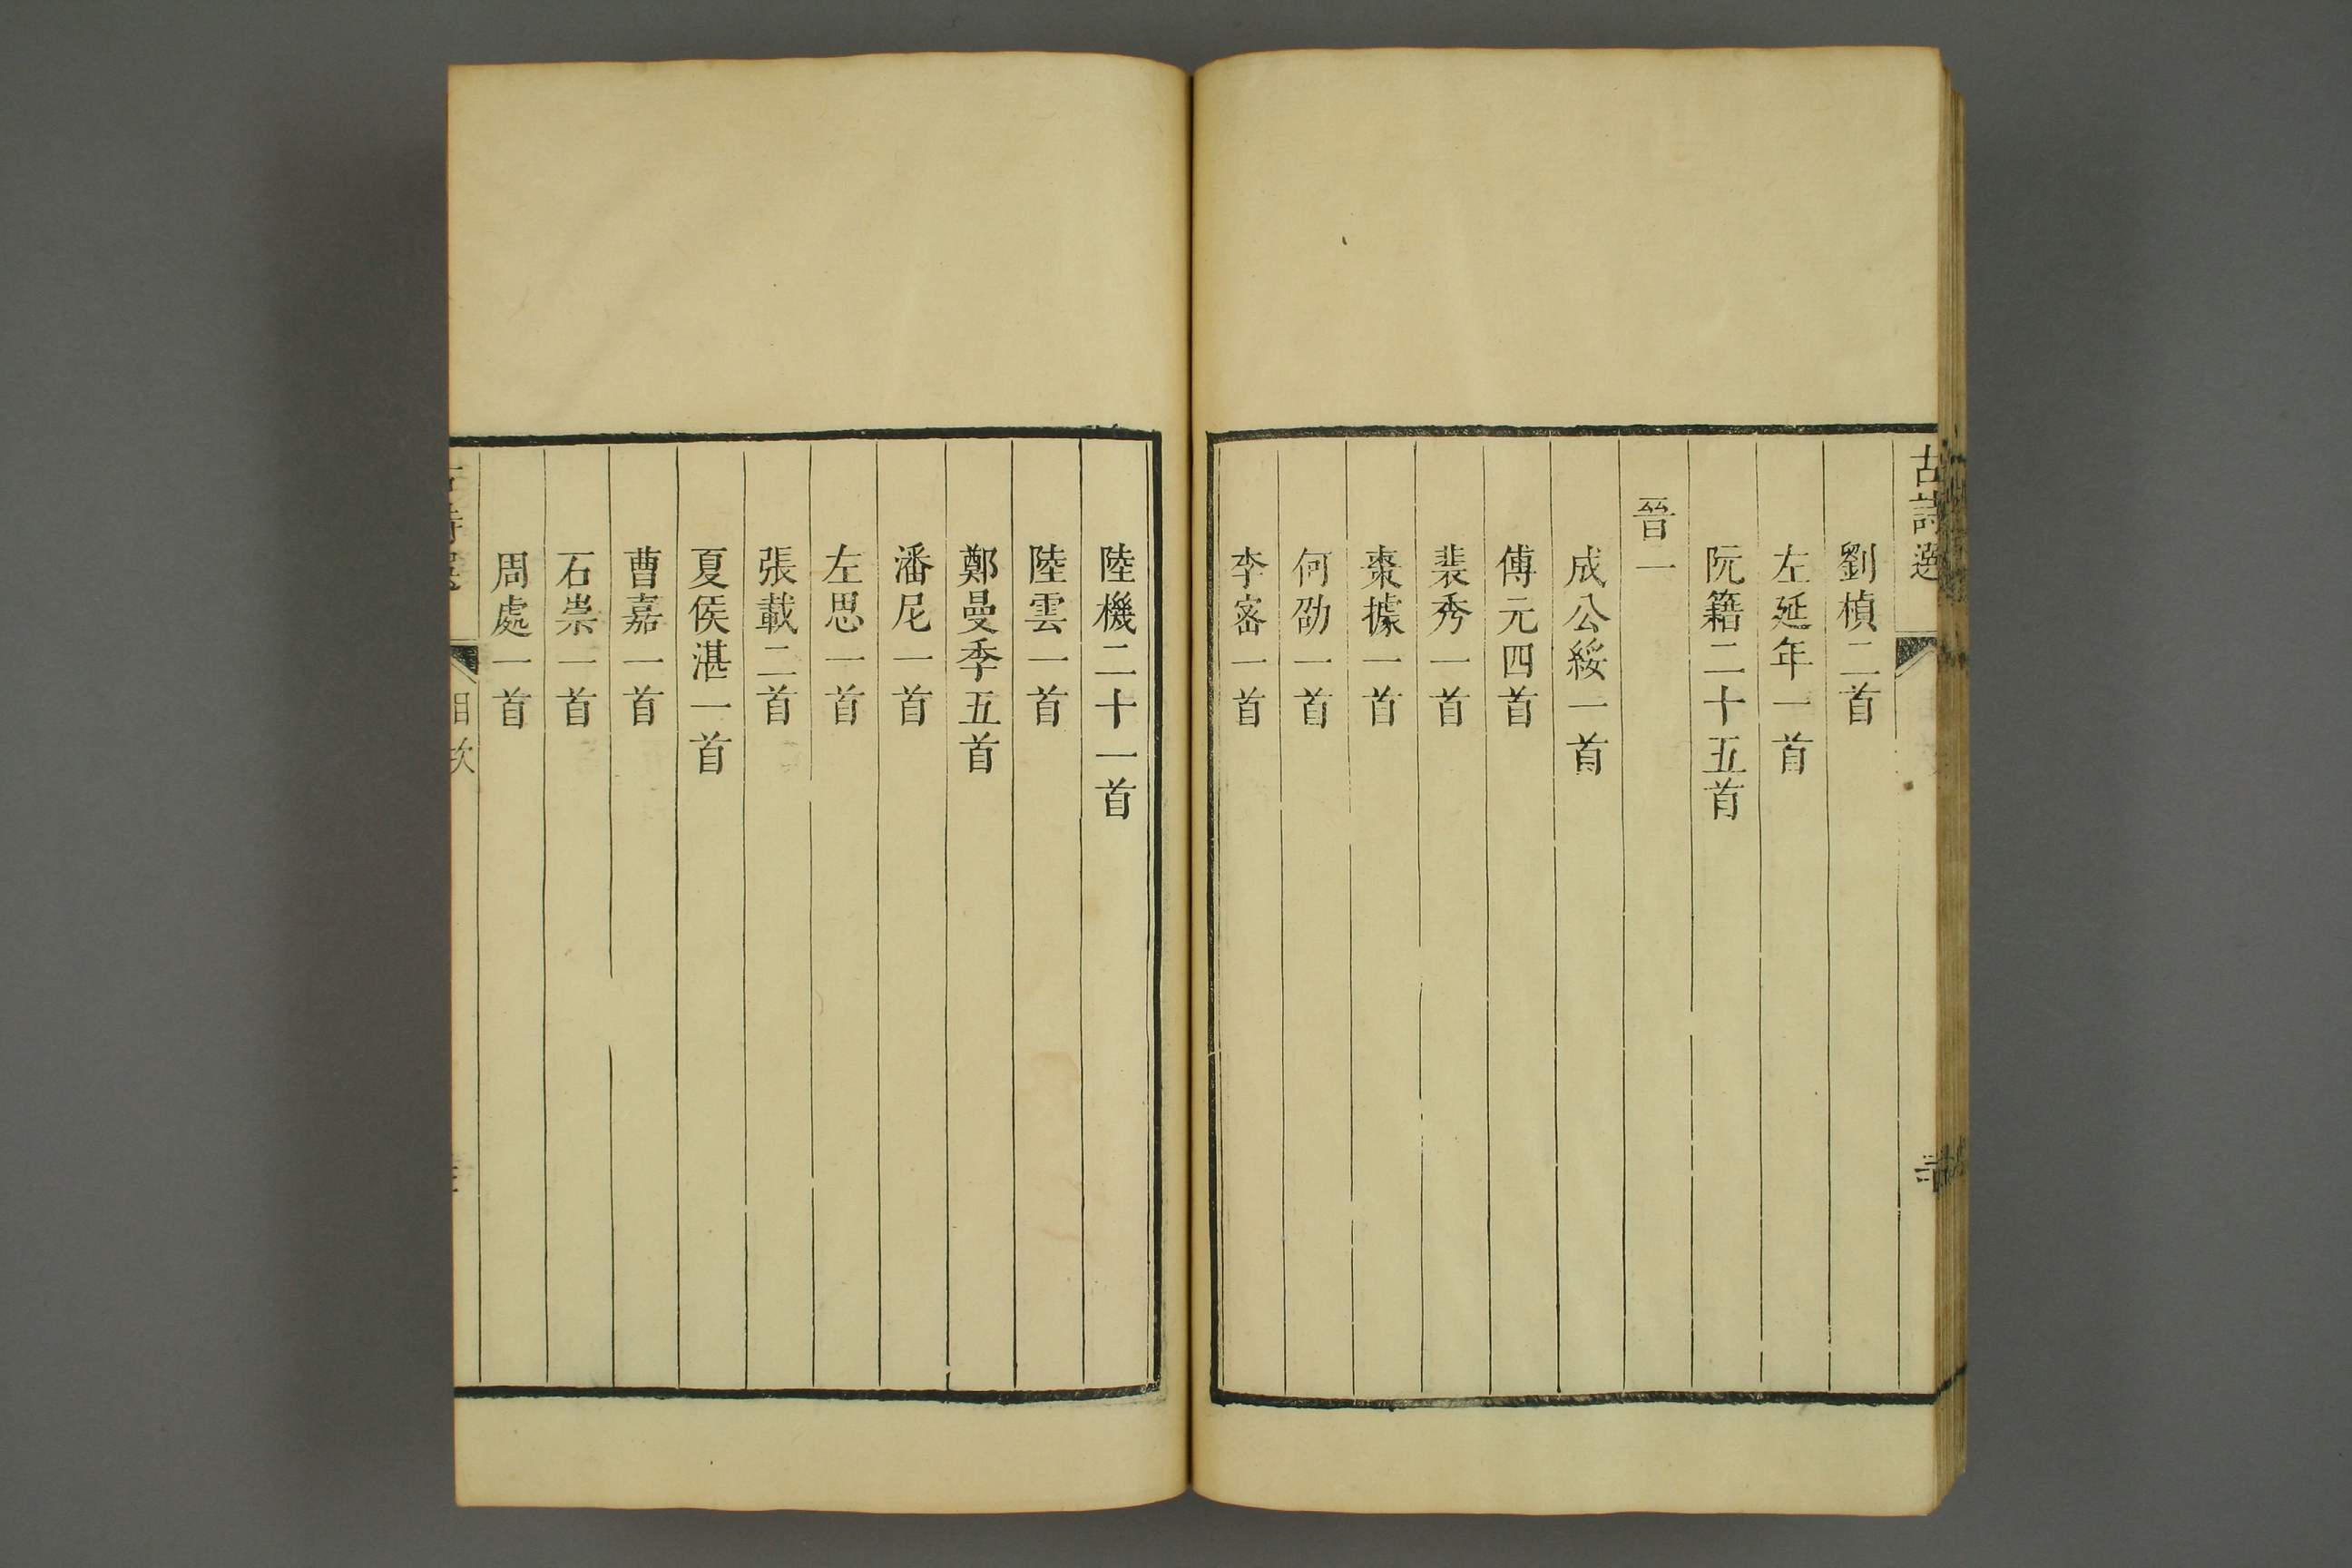 古詩選
劉楨二首
左延年一首
阮籍二十五首
晉一
成公綏一首
傅元四首
裴秀一首
棗據一首
何劭一首
李密一首
陸機二十一首
陸雲一首
鄭曼季五首
潘尼一首
左思一首
張載二首
夏侯湛一首
曹嘉一首
石崇一首
周處一首
目次